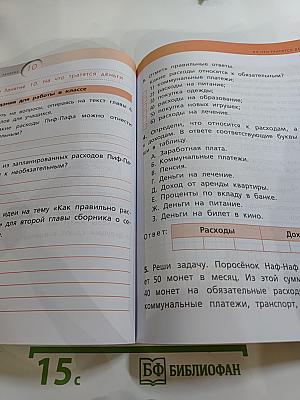 10
Занятие 10. На что тратятся деньги
Задания для работы в классе
на вопросы, опираясь на текст главы
для учащихся.
расходы Пиф-Пафа можно отнести
из запланированных расходов
к необязательным?
идеи на тему «Как правильно
для второй главы сборника о
отметь правильные ответы.
Какие расходы относятся к обязательным?
коммунальные платежи;
расходы на питание;
покупка одежды;
расходы на образование;
покупка новых игрушек;
расходы на лечение.
определи, что относится к расходам, а
доходам. В ответе соответствующие буквы
в таблицу.
А. Заработная плата.
Б. Коммунальные платежи.
В. Пенсия.
Г. Деньги на лечение.
Д. Доход от аренды квартиры.
Е. Проценты по вкладу в банке.
Ж. Деньги на питание.
З. Деньги на билет в кино.
Ответ:
Расходы
5. Реши задачу. Поросёнок Наф-Наф
ет 50 монет в месяц. Из этой
40 монет на обязательные
коммунальные платежи, транспорт,
15 с
БФ БИБЛИОФАН